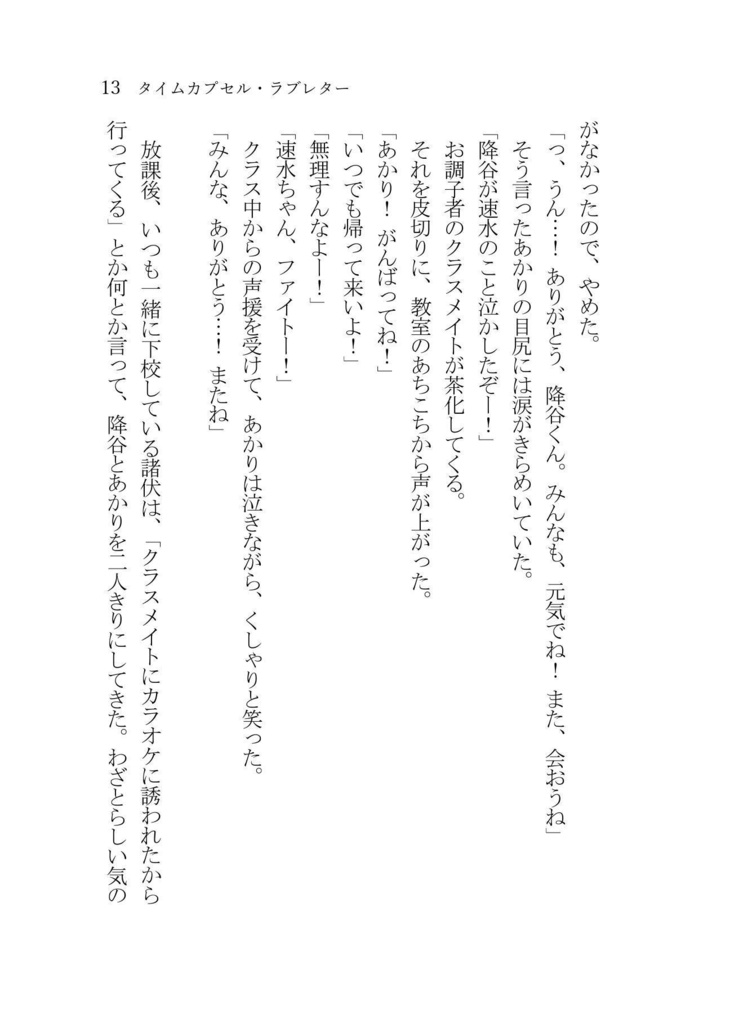 13 タイムカプセル・ラブレター
がなかったので、やめた。
「っ、うん…！ ありがとう、降谷くん。みんなも、元気でね！ また、会おうね」
そう言ったあかりの目尻には涙がきらめいていた。
「降谷が速水のこと泣かしたぞー！」
お調子者のクラスメイトが茶化してくる。
それを皮切りに、教室のあちこちから声が上がった。
「あかり！ がんばってね！」
「いつでも帰って来いよ！」
「無理すんなよー！」
「速水ちゃん、ファイトー！」
クラス中からの声援を受けて、あかりは泣きながら、くしゃりと笑った。
「みんな、ありがとう…！ またね」
放課後、いつも一緒に下校している諸伏は、「クラスメイトにカラオケに誘われたから
行ってくる」とか何とか言って、降谷とあかりを二人きりにしてきた。わざとらしい気の